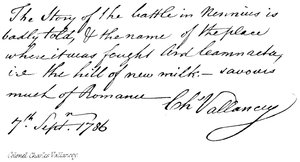 The Story of the battle in Nennius is
badly told, & the name of the place
where it was fought and leamnachta,
i.e the hill of new milk — savours
much of Romance — Chs Vallancey
7th Septr. 1786
Colonel Charles Vallancey.